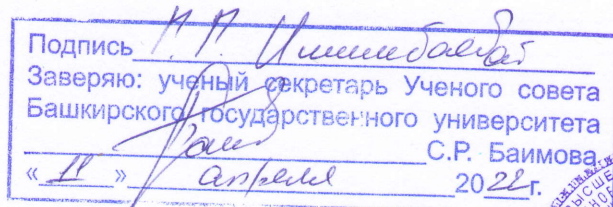 Подпись Г.Г. Ишимбаевой
Заверяю: ученый секретарь Ученого совета
Башкирского государственного университета
С.Р. Баимова
« 11 » апреля 2022г.